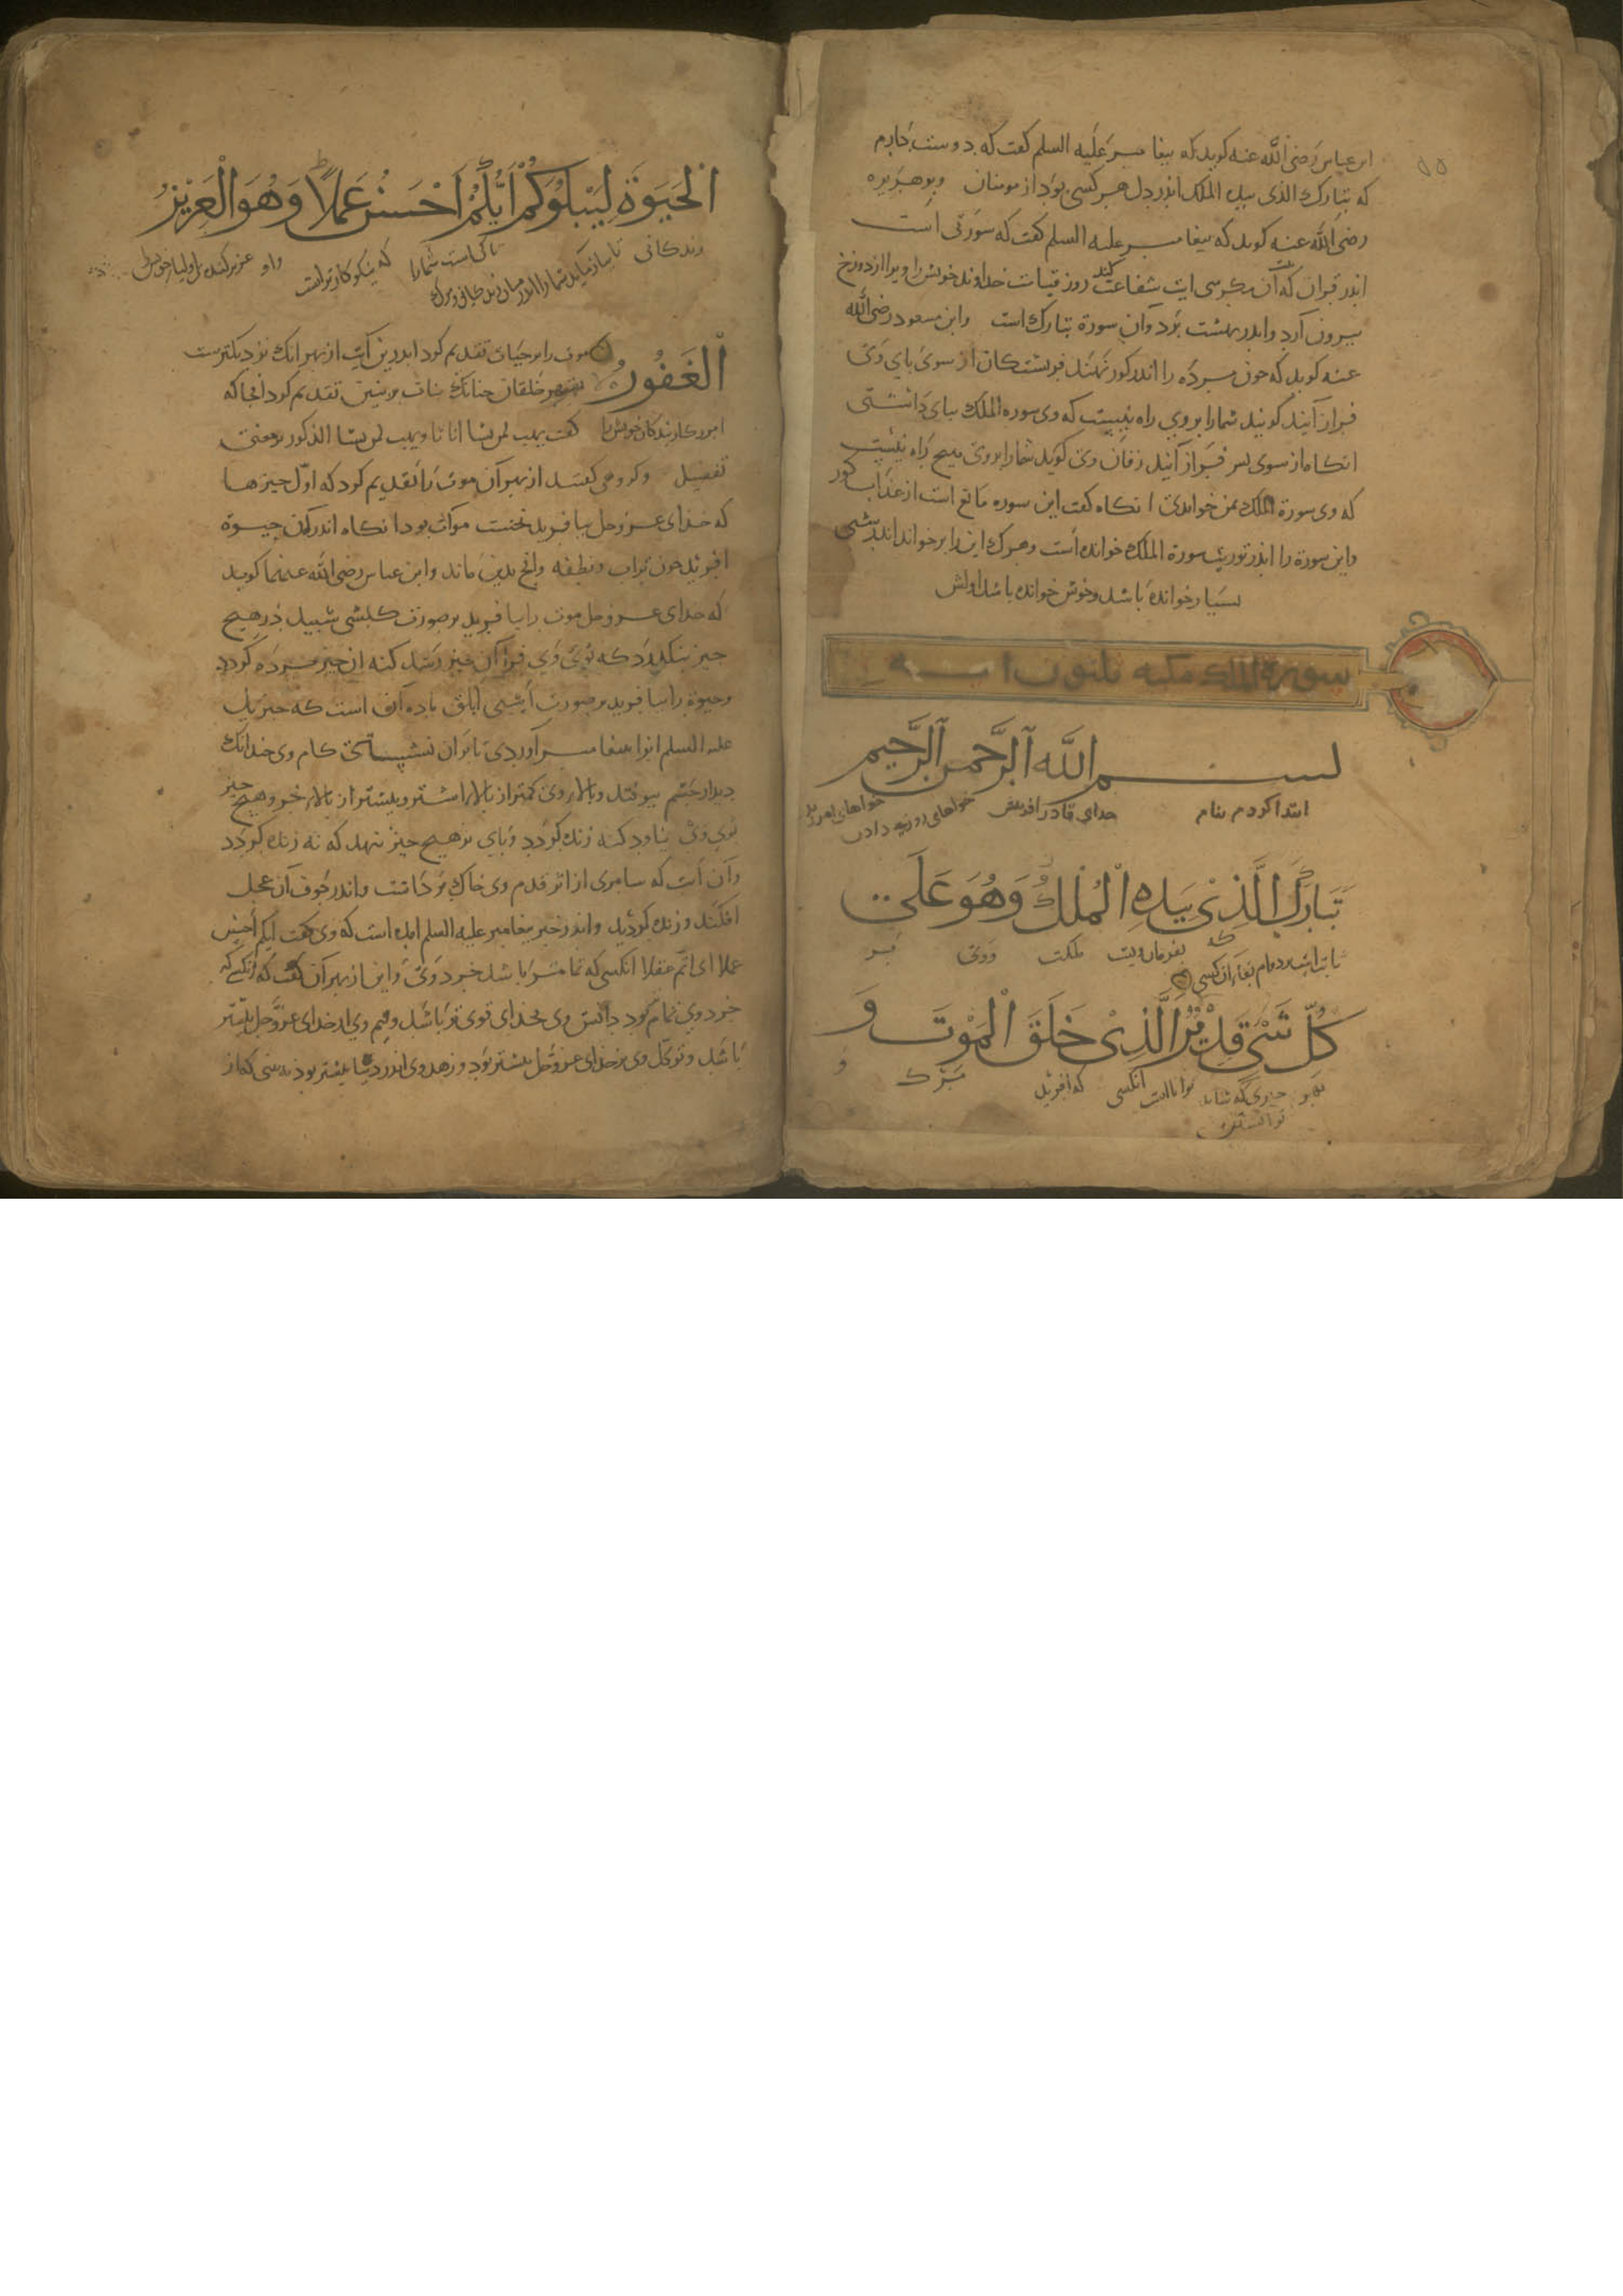 ابن عباس رضی الله عنه کوید که بیغامبر علیه السلم کفت که دوست دارم
که تبارک الذی بیده الملک اندر دل هر کسی بود از مومنان وبوهریره
رضی الله عنه کوید که بیغامبر علیه السلم کفت که سورتی است
اندر قران که آن سی ایت است شفاعت کند روز قیامت خداوند خویش را و ویرا از دوزخ
بیرون آرد واندر بهشت برد وان سورة تبارک است وابن مسعود رضی الله
عنه کوید که جون مرده را اندر کور نهند فریشتکان از سوی بای وی
فراز آیند کویند شمارا بروی راه نیست که وی سوره الملک ببای داشتی
انکاه از سوی سر فراز آیند زفان وی کوید شمارا بروی هیج راه نیست
که وی سورة الملک بمن خواندی انکاه کفت این سوره مانع است از عذاب کور
واین سورة را اندر توریت سورة الملک خوانده است وهرک این را برخواند اندر شبی
بسیار خوانده باشد وخوش خوانده باشد اولش
سورة الملک مکیه ثلثون ایه
بسم الله الرحمن الرحیم
ابتدا کردم بنام خدای قادر افرینش خواهای روزی دادن
تَبَارَكَ الَّذِیْ بِیَدِهِ الْمُلْكُ وَهُوَ عَلَی
ثابتست بردوام بقاء ان کسی که بفرمان ویست ملکت ووی بر
كُلِّ شَیْ قَدِیْرُ الَّذِیْ خَلَقَ الْمَوْتَ وَ
جیزی که شاید توانستن توانااست انکسی که افرید مرک و
الْحَیَوةَ لِیَبْلُوَكُمْ اَیُّكُمْ اَحْسَنُ عَمَلًا وَهُوَ الْعَزِیْزُ
زندکانی تا کیست شمارا که نیکو کارتراست واو عزیز کننده اولیا خویش
الْغَفُورُ
موت را بر حیات تقدیم کرد اندرین آیت از بهر انک نزدیکترست
بقهر خلقان جنانک بنات بر بنین تقدیم کرد انجا که
امرزکار بندکان خویش را کفت یهب لمن یشا اناثا ویهب لمن یشا الذکور بر معنی
تفصیل وکروهی کفتند از بهر آن موت را تقدیم کرد که اول جیزها
که خدای عزوجل بیافرید نخست موات بود انکاه اندر آن حیوة
افرید جون تراب ونطفه وانج بدین ماند وابن عباس رضی الله عنهما کوید
که خدای عزوجل موت را بیافرید بر صورت کبشی بر هیج
جیز بنکذرد که بوی وی فرا آن جیز رسد کنه ان جیز مرده کردد
وحیوة را بیافرید بر صورت اسبی ابلق ماده آن است که جبریل
علیه السلم انرا بیغامبر آوردی تا بران نشستی کام وی جندانک
دیدار جشم وبالا وی کمتر از بالا اشتر وبیشتر از بالا خر وهیج جیز
بوی وی نیاود کنه زنده کردد وبای بر هیج جیز ننهد که نه زنده کردد
وآن است که سامری از اثر قدم وی خاک برداشت واندر جوف آن عجل
افکند وزنده کردید واندر خبر بیغامبر علیه السلم امده است که وی کفت ایکم احسن
عملا ای اتم عقلا انکسی که تمامتر باشد خرد وی واین از بهر آن کفت که انکسی که
خرد وی تمام بود دانش وی بخدای قوی تر باشد وبیم وی از خدای عزوجل بیشتر
باشد وتوکل وی بر خدای عزوجل بیشتر بود وزهد وی اندر دنیا بیشتر بود